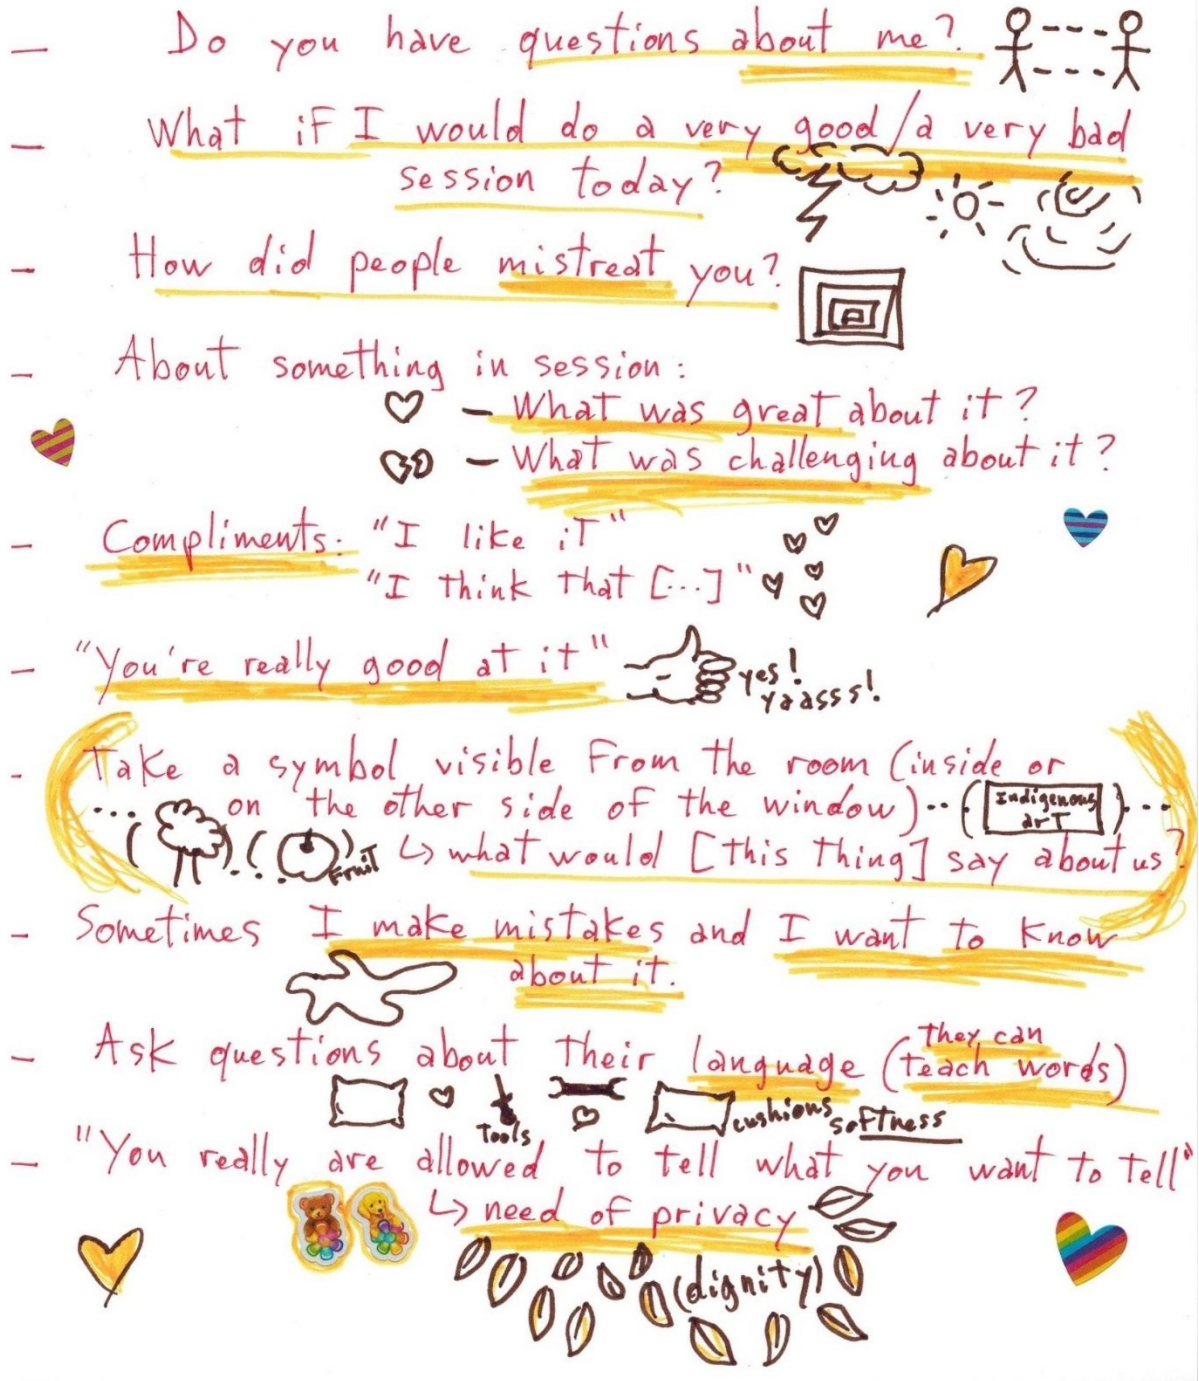 — Do you have questions about me?
— What if I would do a very good/a very bad
session today?
— How did people mistreat you?
— About something in session:
— What was great about it?
— What was challenging about it?
— Compliments: "I like it"
"I think that [...]"
— "You're really good at it"
yes!
yaasss!
- Take a symbol visible from the room (inside or
... on the other side of the window)..(Indigenous
art)...
( ).(. Fruit ) ↳ what would [this thing] say about us?
- Sometimes I make mistakes and I want to know
about it.
they can
- Ask questions about their language (teach words)
Tools cushions softness
— "You really are allowed to tell what you want to tell"
↳ need of privacy
(dignity)